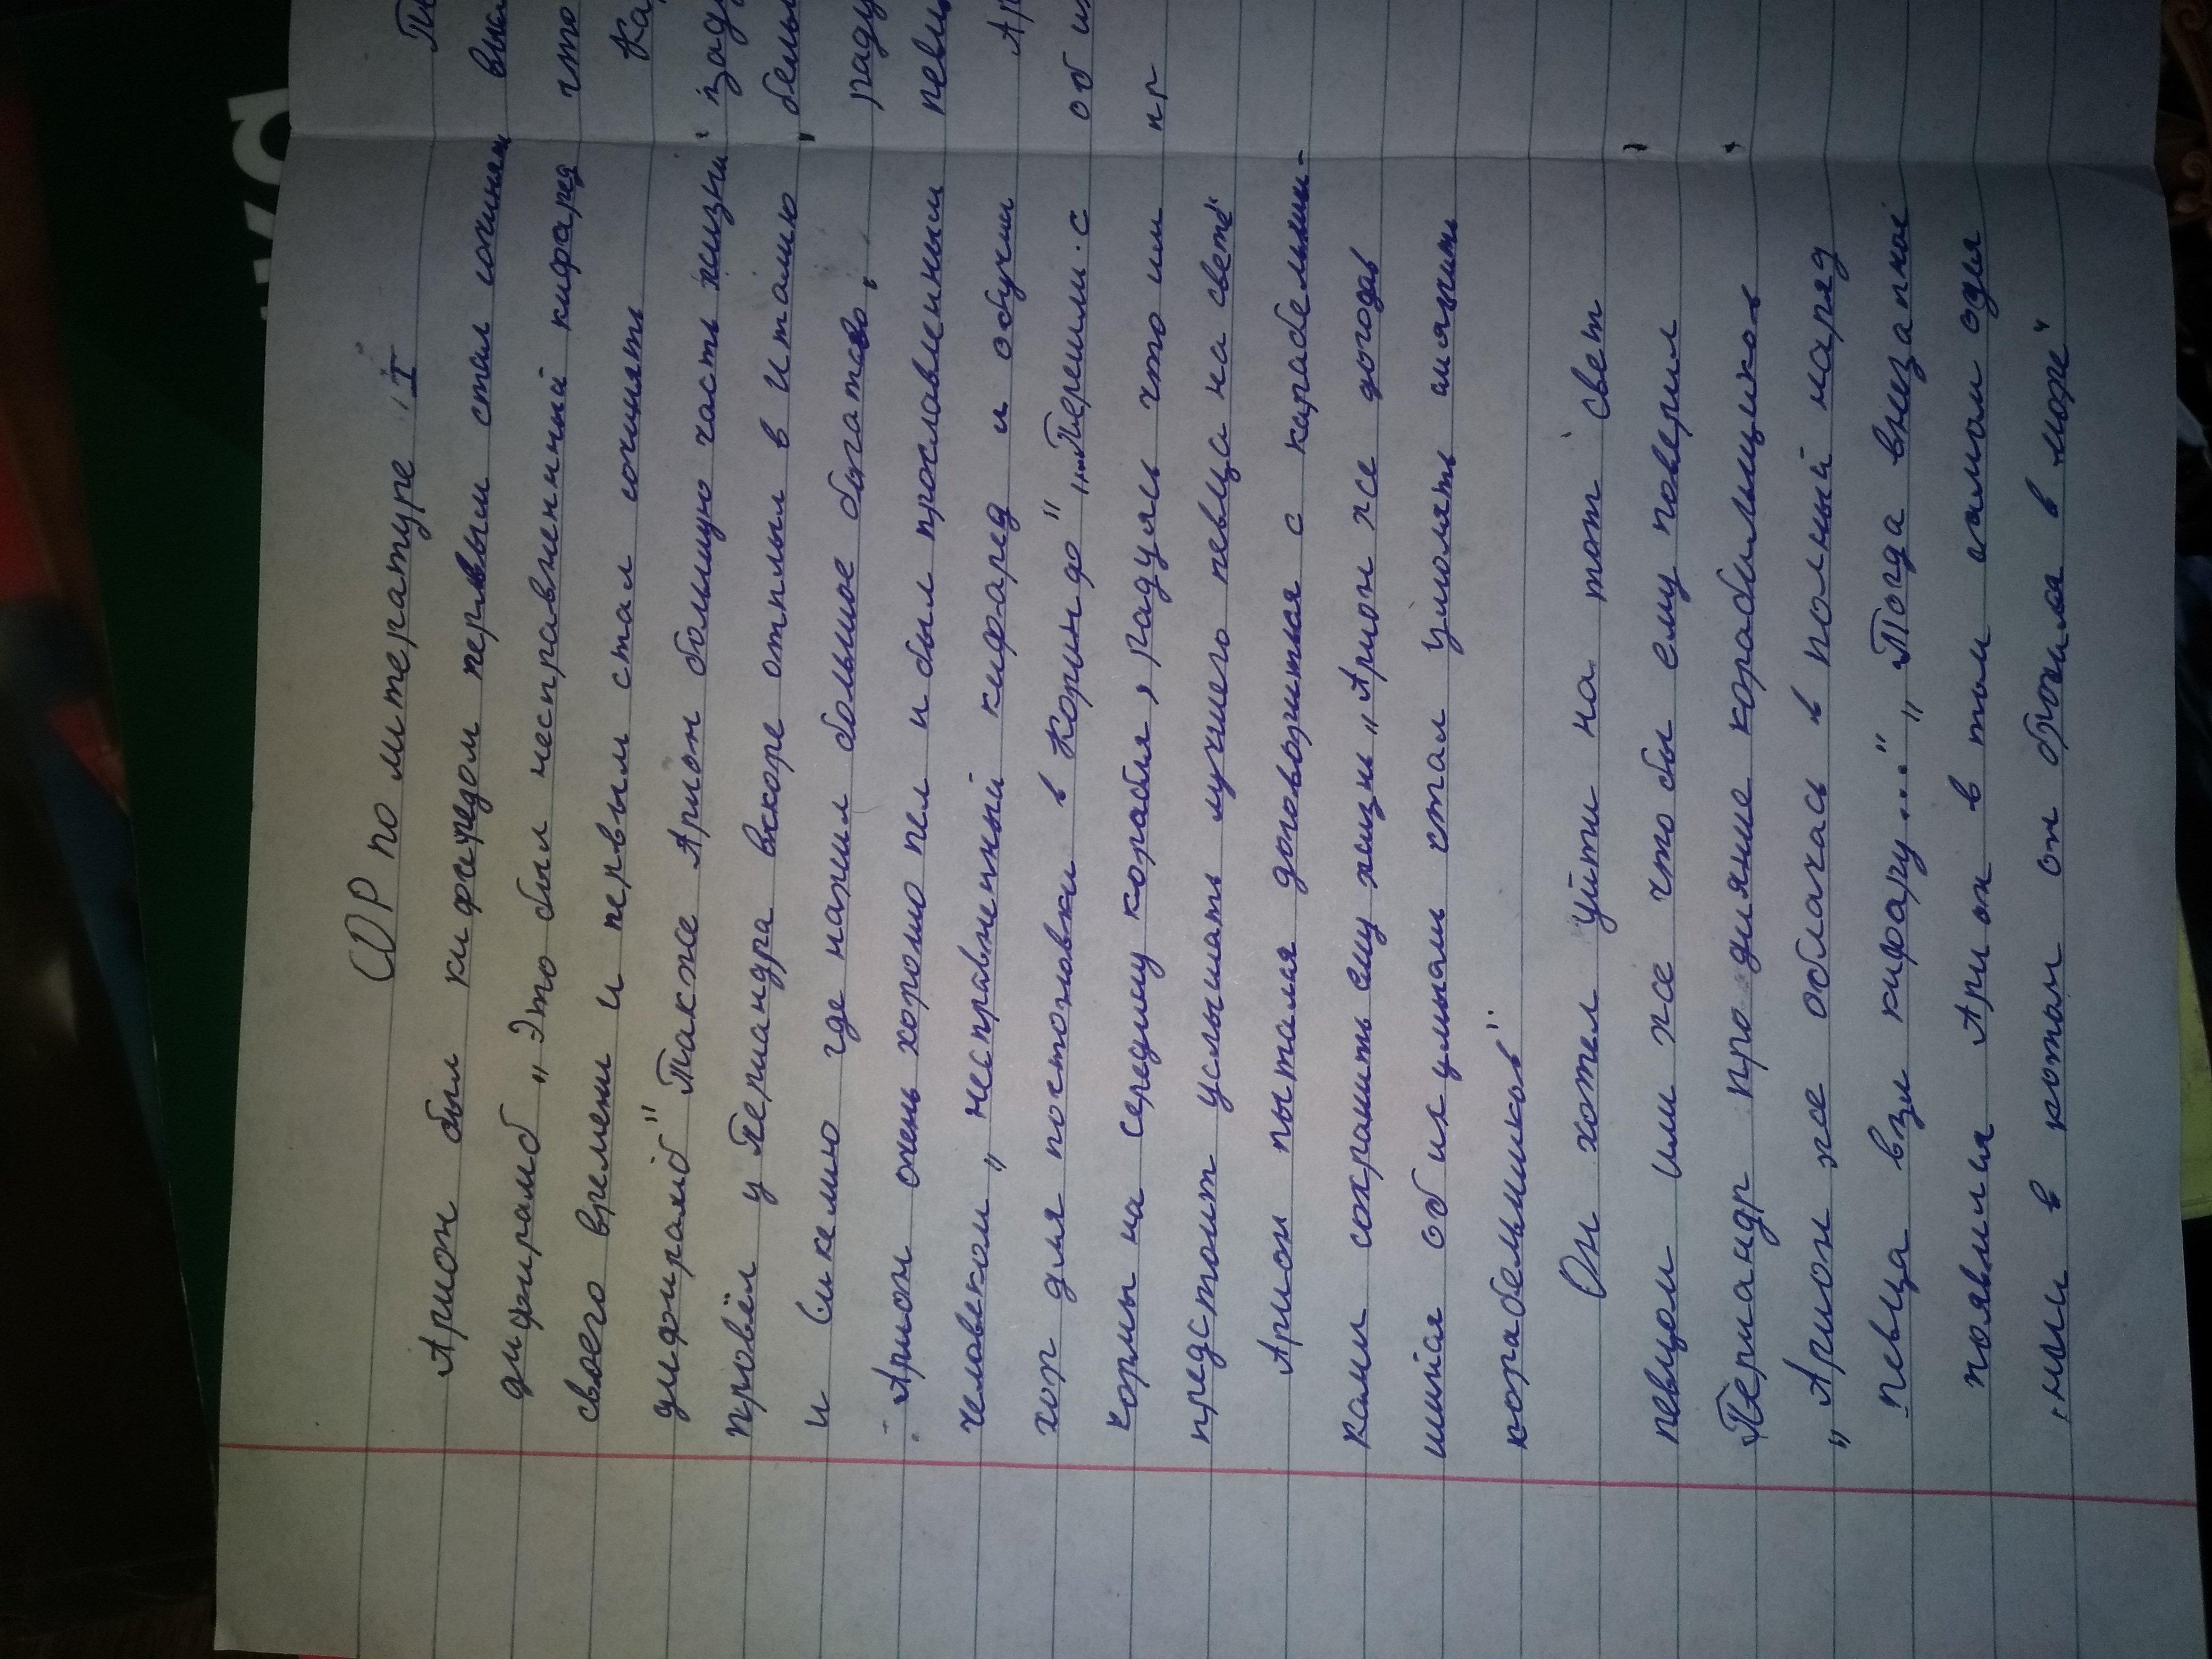 СОР по литературе I
Арион был кифаредом первым стал сочинять
дифирамб „Это был несправненный кифаред
своего времени и первым стал сочинять
дифирамб" Также Арион большую часть жизни
провёл у Периандра вскоре отплыл в Италию
и Сикелию где нажил большое богатсво.
Арион очень хорошо пел и был прославленным
человеком „несправненный кифаред и обучил
хор для постоновки в Коринфо" „Перешли с
кормы на середину корабля, радуясь что им
предстоит услышать лучшего певца на свете"
Арион пытался договориться с карабельщи-
ками сохранить ему жизнь „Арион же догодав
шийся об их умысле стал умолять смягчить
корабельшиков"
Он хотел уйти на тот свет
певцом или же что бы ему поверил
Периандр про дияние корабильщиков
„Арион же облачась в полный наряд
певца взял кифару..." „Тогда внезапно
появился Арион в том самом одея
нии в котом он бросился в море"
Пе
что
Ка
заду
белы
раду
певц
Ар
об их
пр